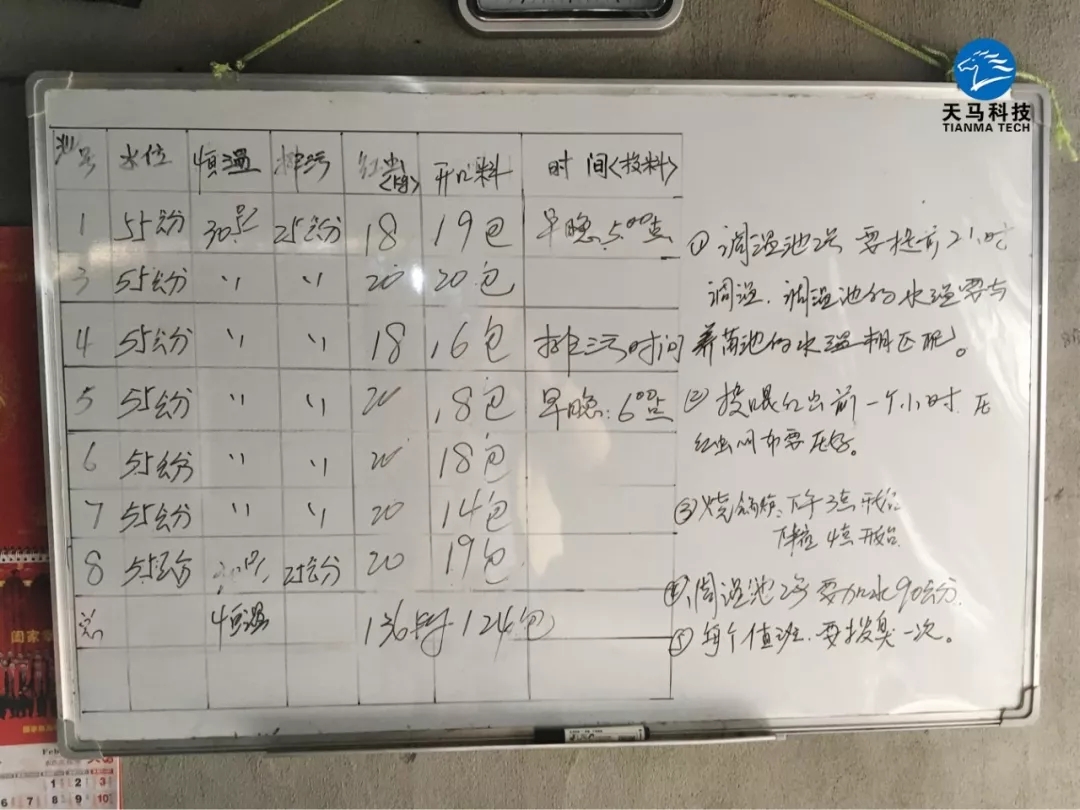 天马科技
TIANMA TECH
池号 水位 恒温 排污 红虫(kg) 开口料 时间<投料>
1 55公分 30度 25公分 18 19包 早晚5:00点
3 55公分 〃 〃 20 20包
4 55公分 〃 〃 18 16包 排污时间
5 55公分 〃 〃 20 18包 早晚:6:00点
6 55公分 〃 〃 20 18包
7 55公分 〃 〃 20 14包
8 55公分 30度 25公分 20 19包
总 恒温 136kg 124包
① 调温池2号 要提前2小时
调温,调温池的水温要与
养苗池的水温相匹配。
② 投喂红虫前一个小时
红虫 布要 好。
③ 烧锅炉、下午3点开始
4点开始
④ 调温池2号要加水90公分.
⑤ 每个值班,要投臭一次。
Feb
1 2 3
6 7 8 9 10